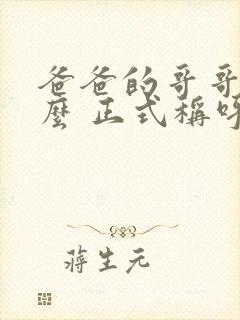 爸爸的哥哥
麼 正式稱呼
蔣生元